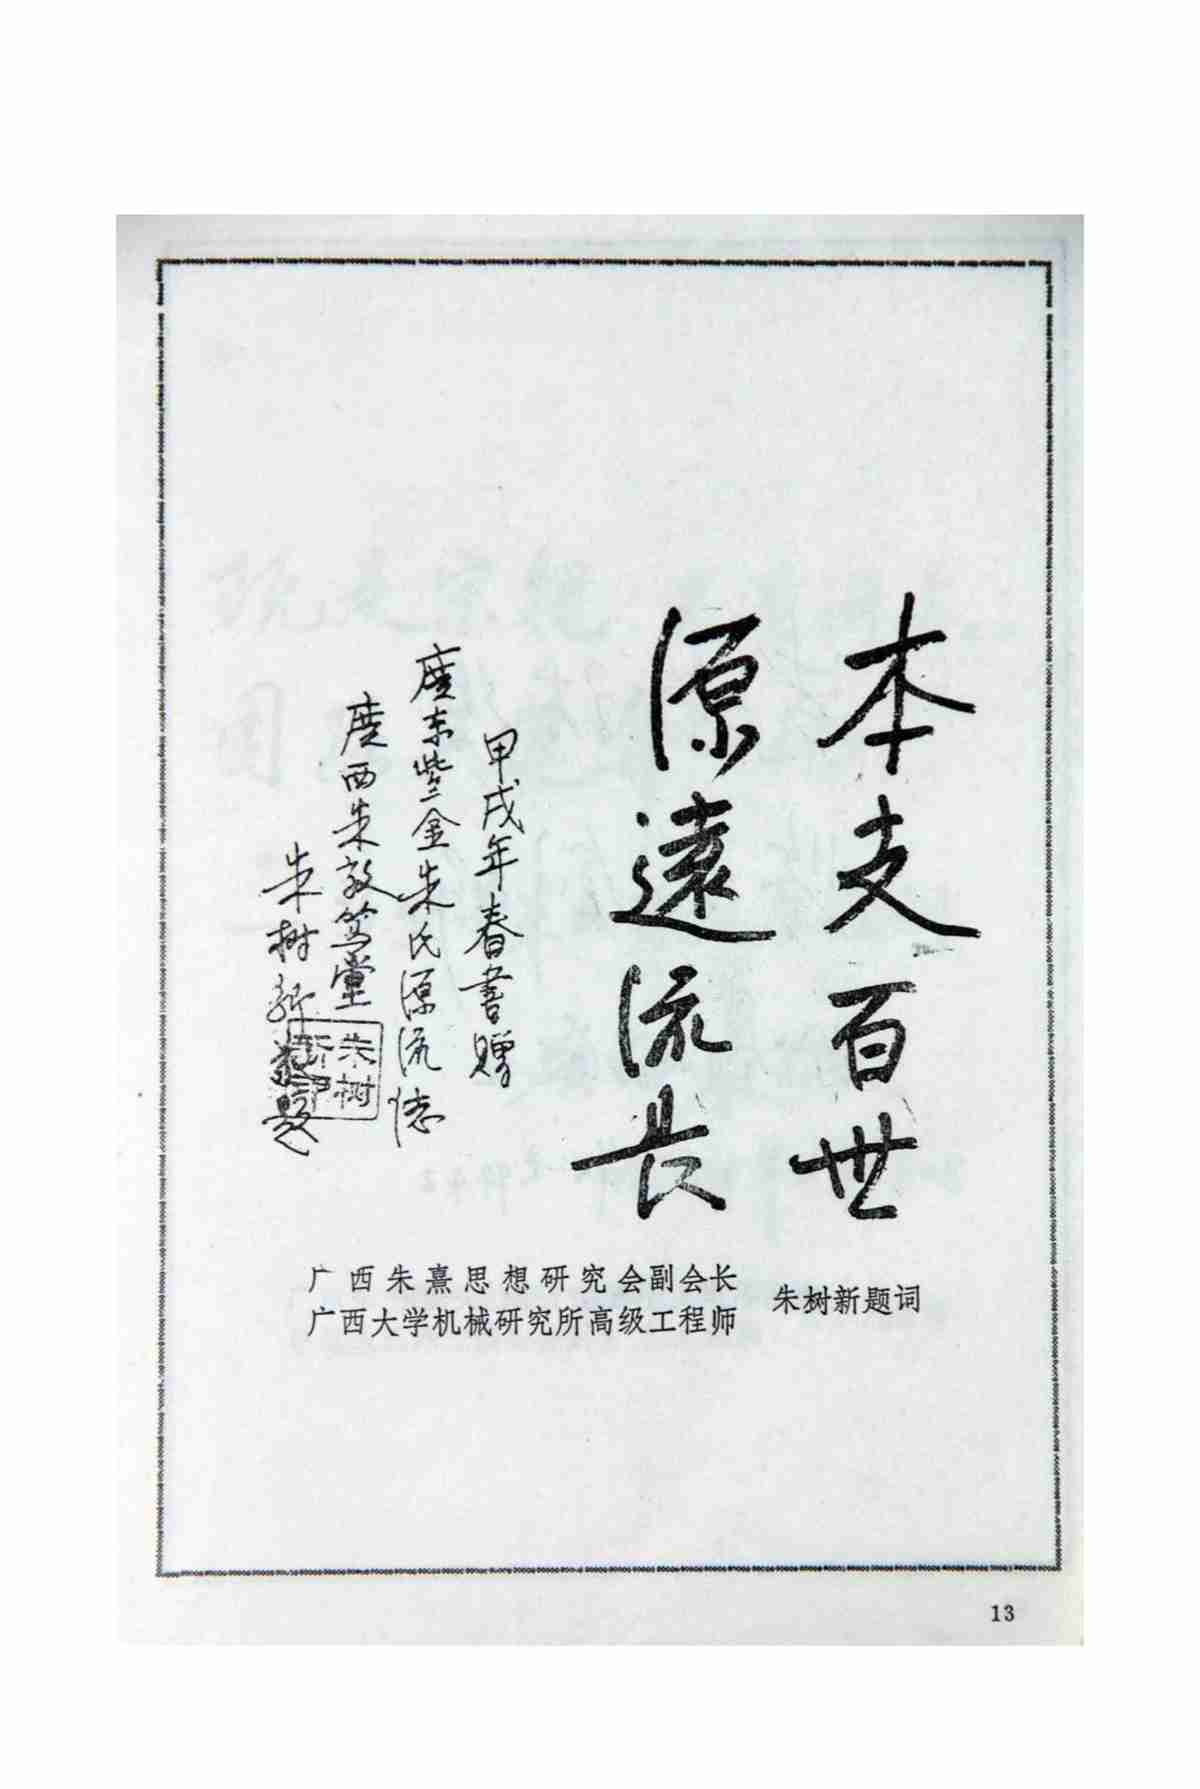 本支百世
源遠流长
甲戌年春書贈
廣东紫金朱氏源流志
廣西朱敦笃堂
朱树新敬题
朱树
新印
广西朱熹思想研究会副会长
广西大学机械研究所高级工程师
朱树新题词
13